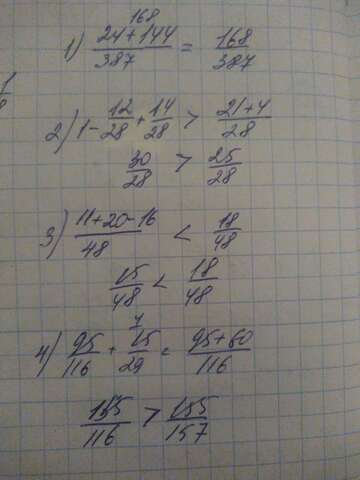 168
1) 24+144/387 = 168/387
2) 1-12/28+14/28 > 21+4/28
30/28 > 25/28
3) 11+20-16/48 < 18/48
15/48 < 18/48
4
4) 95/116 + 15/29 = 95+60/116
155/116 > 155/157